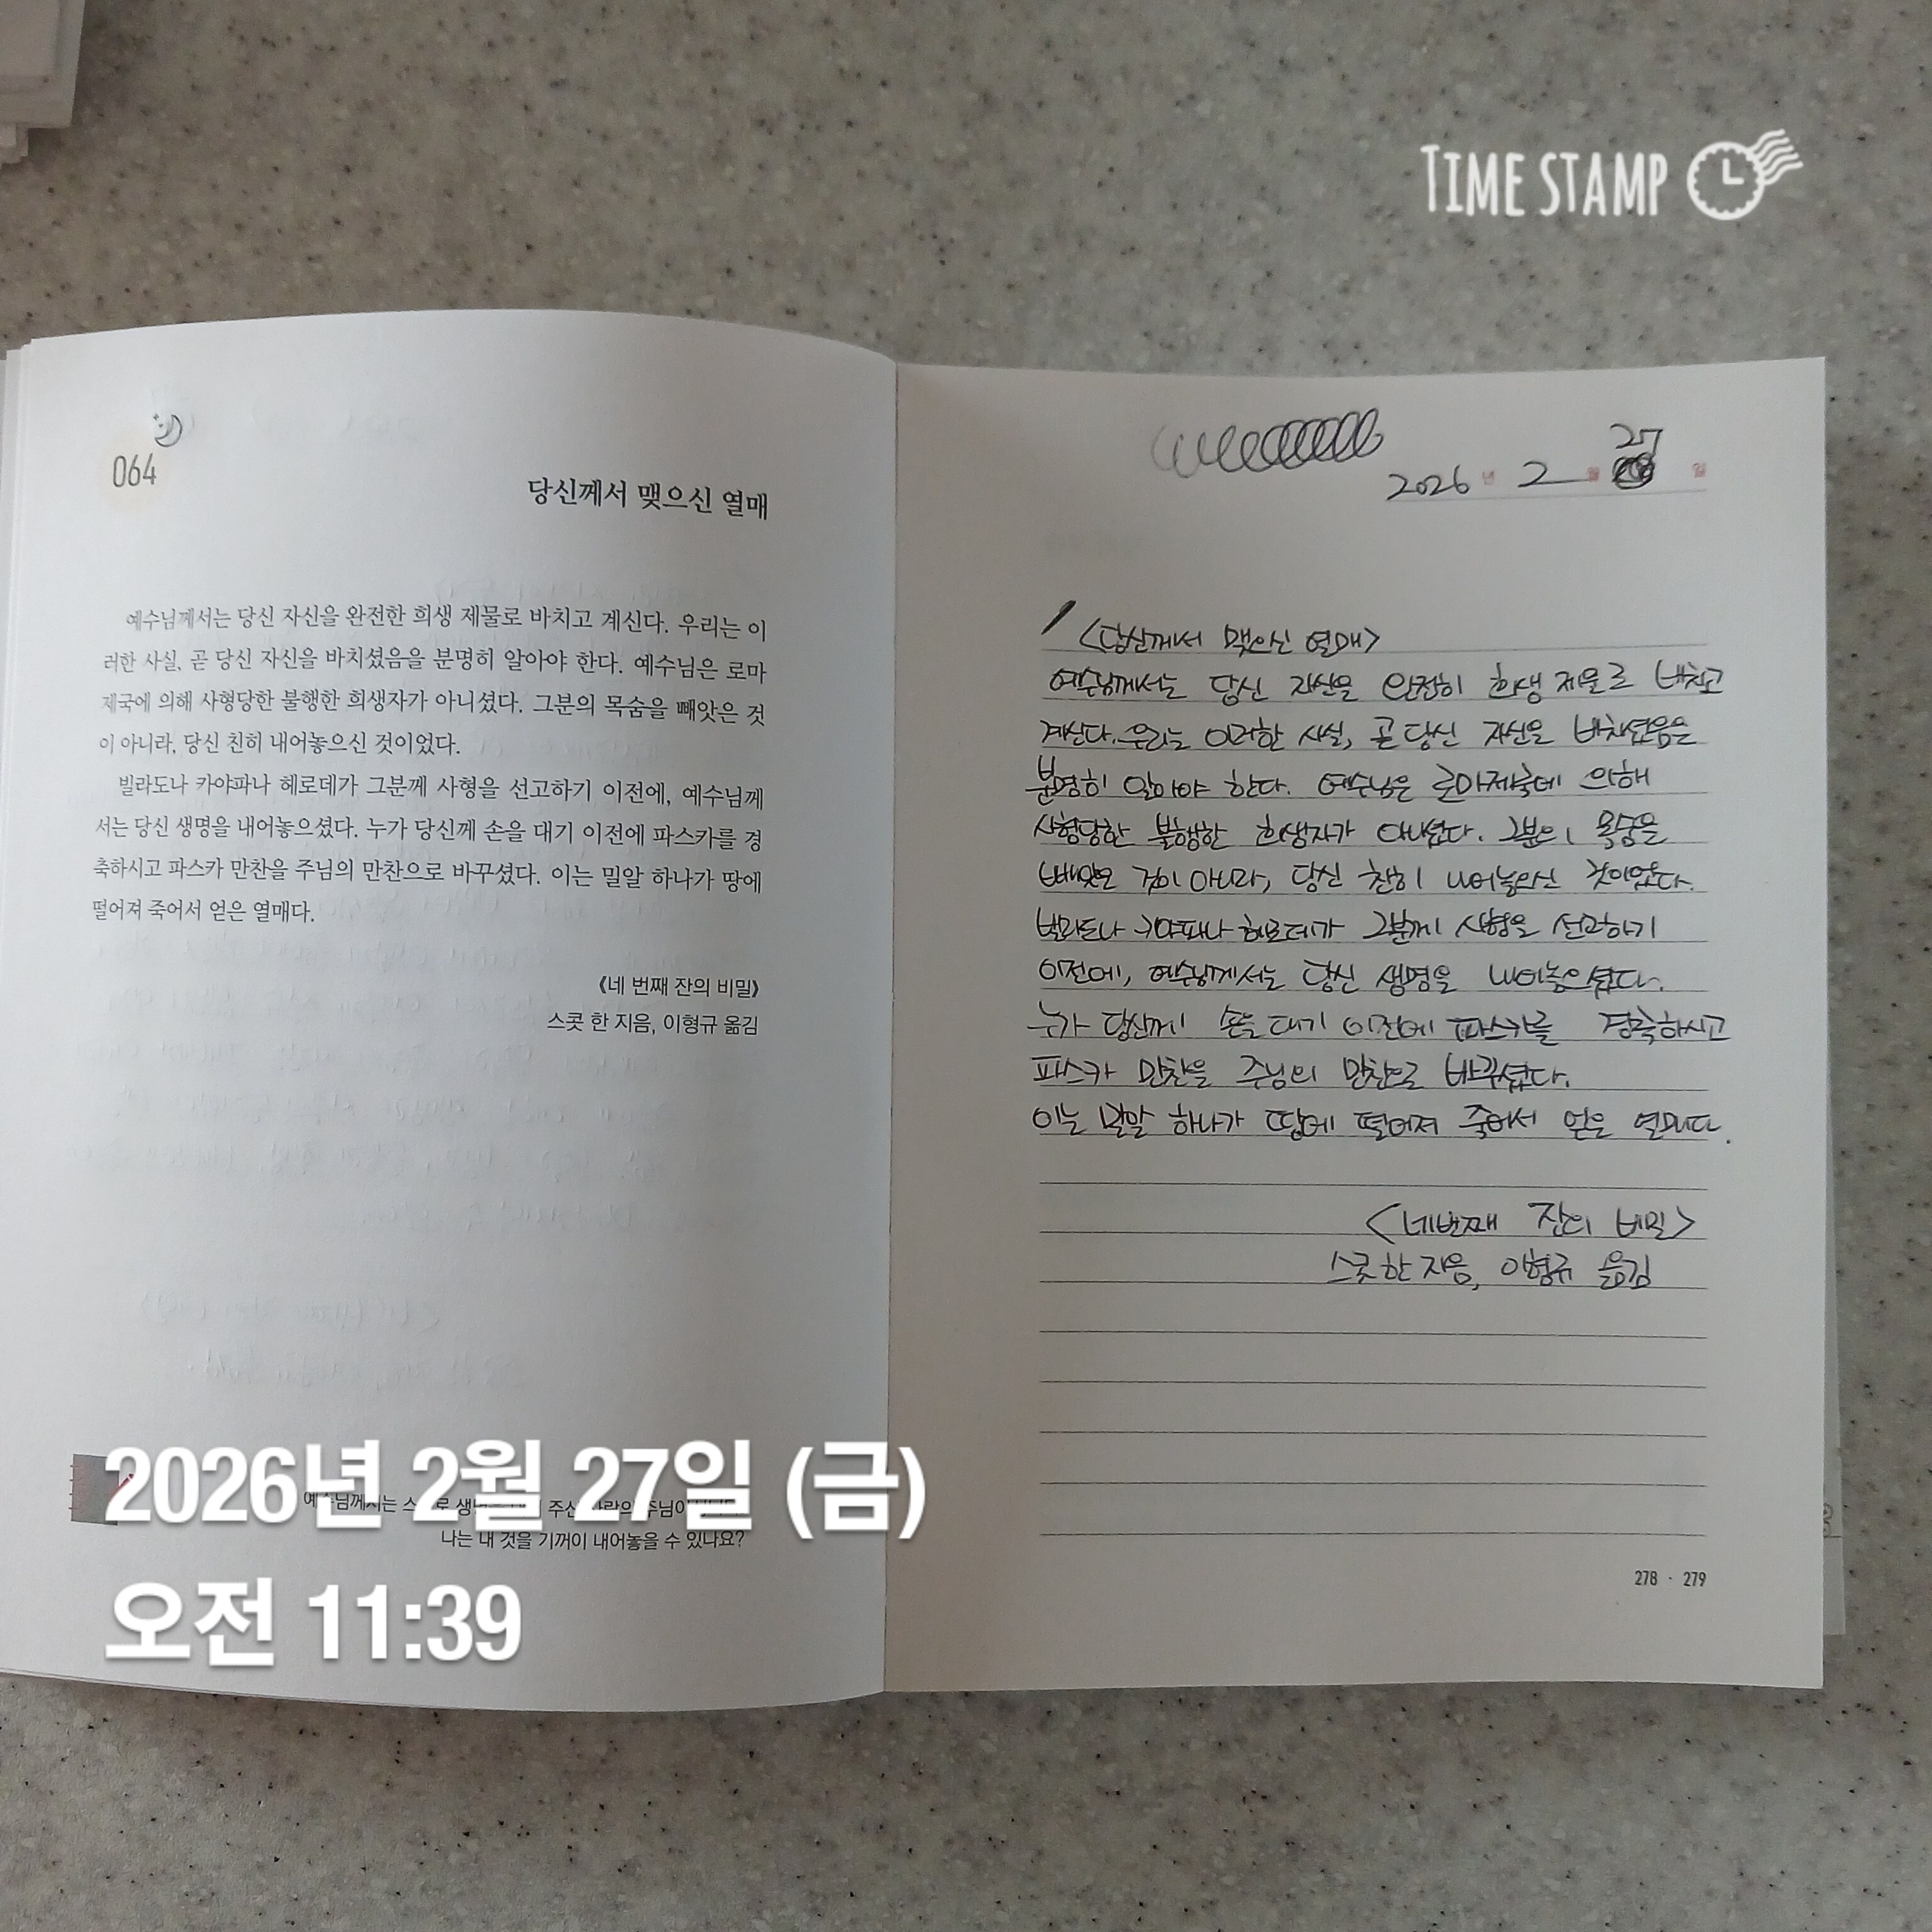 TIME STAMP
064
당신께서 맺으신 열매
예수님께서는 당신 자신을 완전한 희생 제물로 바치고 계신다. 우리는 이
러한 사실, 곧 당신 자신을 바치셨음을 분명히 알아야 한다. 예수님은 로마
제국에 의해 사형당한 불행한 희생자가 아니셨다. 그분의 목숨을 빼앗은 것
이 아니라, 당신 친히 내어놓으신 것이었다.
빌라도나 카야파나 헤로데가 그분께 사형을 선고하기 이전에, 예수님께
서는 당신 생명을 내어놓으셨다. 누가 당신께 손을 대기 이전에 파스카를 경
축하시고 파스카 만찬을 주님의 만찬으로 바꾸셨다. 이는 밀알 하나가 땅에
떨어져 죽어서 얻은 열매다.
《네 번째 잔의 비밀》
스콧 한 지음, 이형규 옮김
예수님께서는 주신
나는 내 것을 기꺼이 내어놓을 수 있나요?
2026년 2월 27일
<당신께서 맺으신 열매>
예수님께서는 당신 자신을 완전히 희생 제물로 바치고
계신다. 우리는 이러한 사실, 곧 당신 자신을 바치셨음을
분명히 알아야 한다. 예수님은 로마제국에 의해
사형당한 불행한 희생자가 아니셨다. 그분의 목숨을
빼앗은 것이 아니라, 당신 친히 내어놓으신 것이었다.
빌라도나 카야파나 헤로데가 그분께 사형을 선고하기
이전에, 예수님께서는 당신 생명을 내어놓으셨다.
누가 당신께 손을 대기 이전에 파스카를 경축하시고
파스카 만찬을 주님의 만찬으로 바꾸셨다.
이는 밀알 하나가 땅에 떨어져 죽어서 얻은 열매다.
<네번째 잔의 비밀>
스콧 한 지음, 이형규 옮김
278 · 279
2026년 2월 27일 (금)
오전 11:39